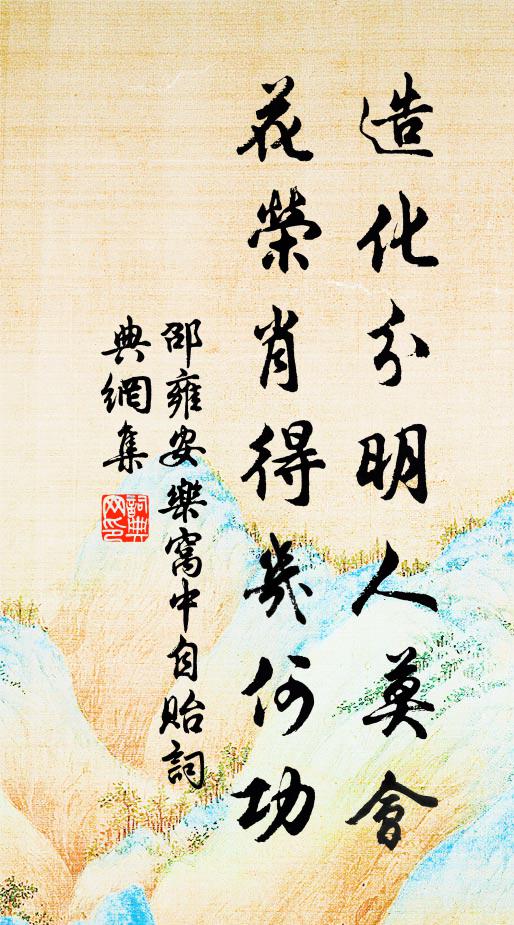 造化分明人莫會
花榮肖得幾何功
邵雍安樂窩中自貽詞
典網集
詞典網印